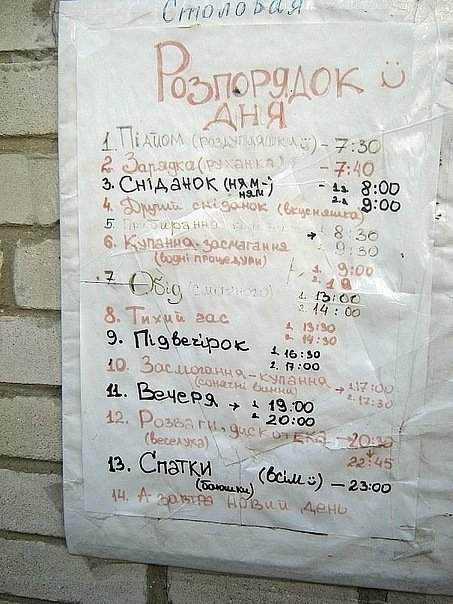 Столовая
Розпорядок
дня
1. Підйом (роздупляшки) - 7:30
2. Зарядка (руханка) - 7:40
3. Сніданок (ням-ням) - 1.з 8:00
2.з 9:00
4. Другий сніданок (вкусняшка)
5. Прибирання → 8:30
9:30
6. Купання-засмагання
(водні процедури) 1. 9:00
2. 10
7. Обід (смачного) 1. 13:00
2. 14:00
8. Тихий час 1. 13:30
2. 14:30
9. Підвечірок 1. 16:30
2. 17:00
10. Засмагання-купання
(сонячні ванни) → 1. 17:00
2. 17:30
11. Вечеря → 1. 19:00
2. 20:00
12. Розваги, дискотека → 20:30
(веселуха) 22:45
13. Спатки (всім) - 23:00
(баюшки)
14. А завтра новий день